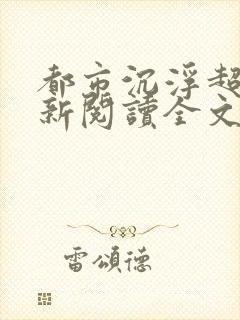 都市沉浮超
新閱讀全文
雷頌德